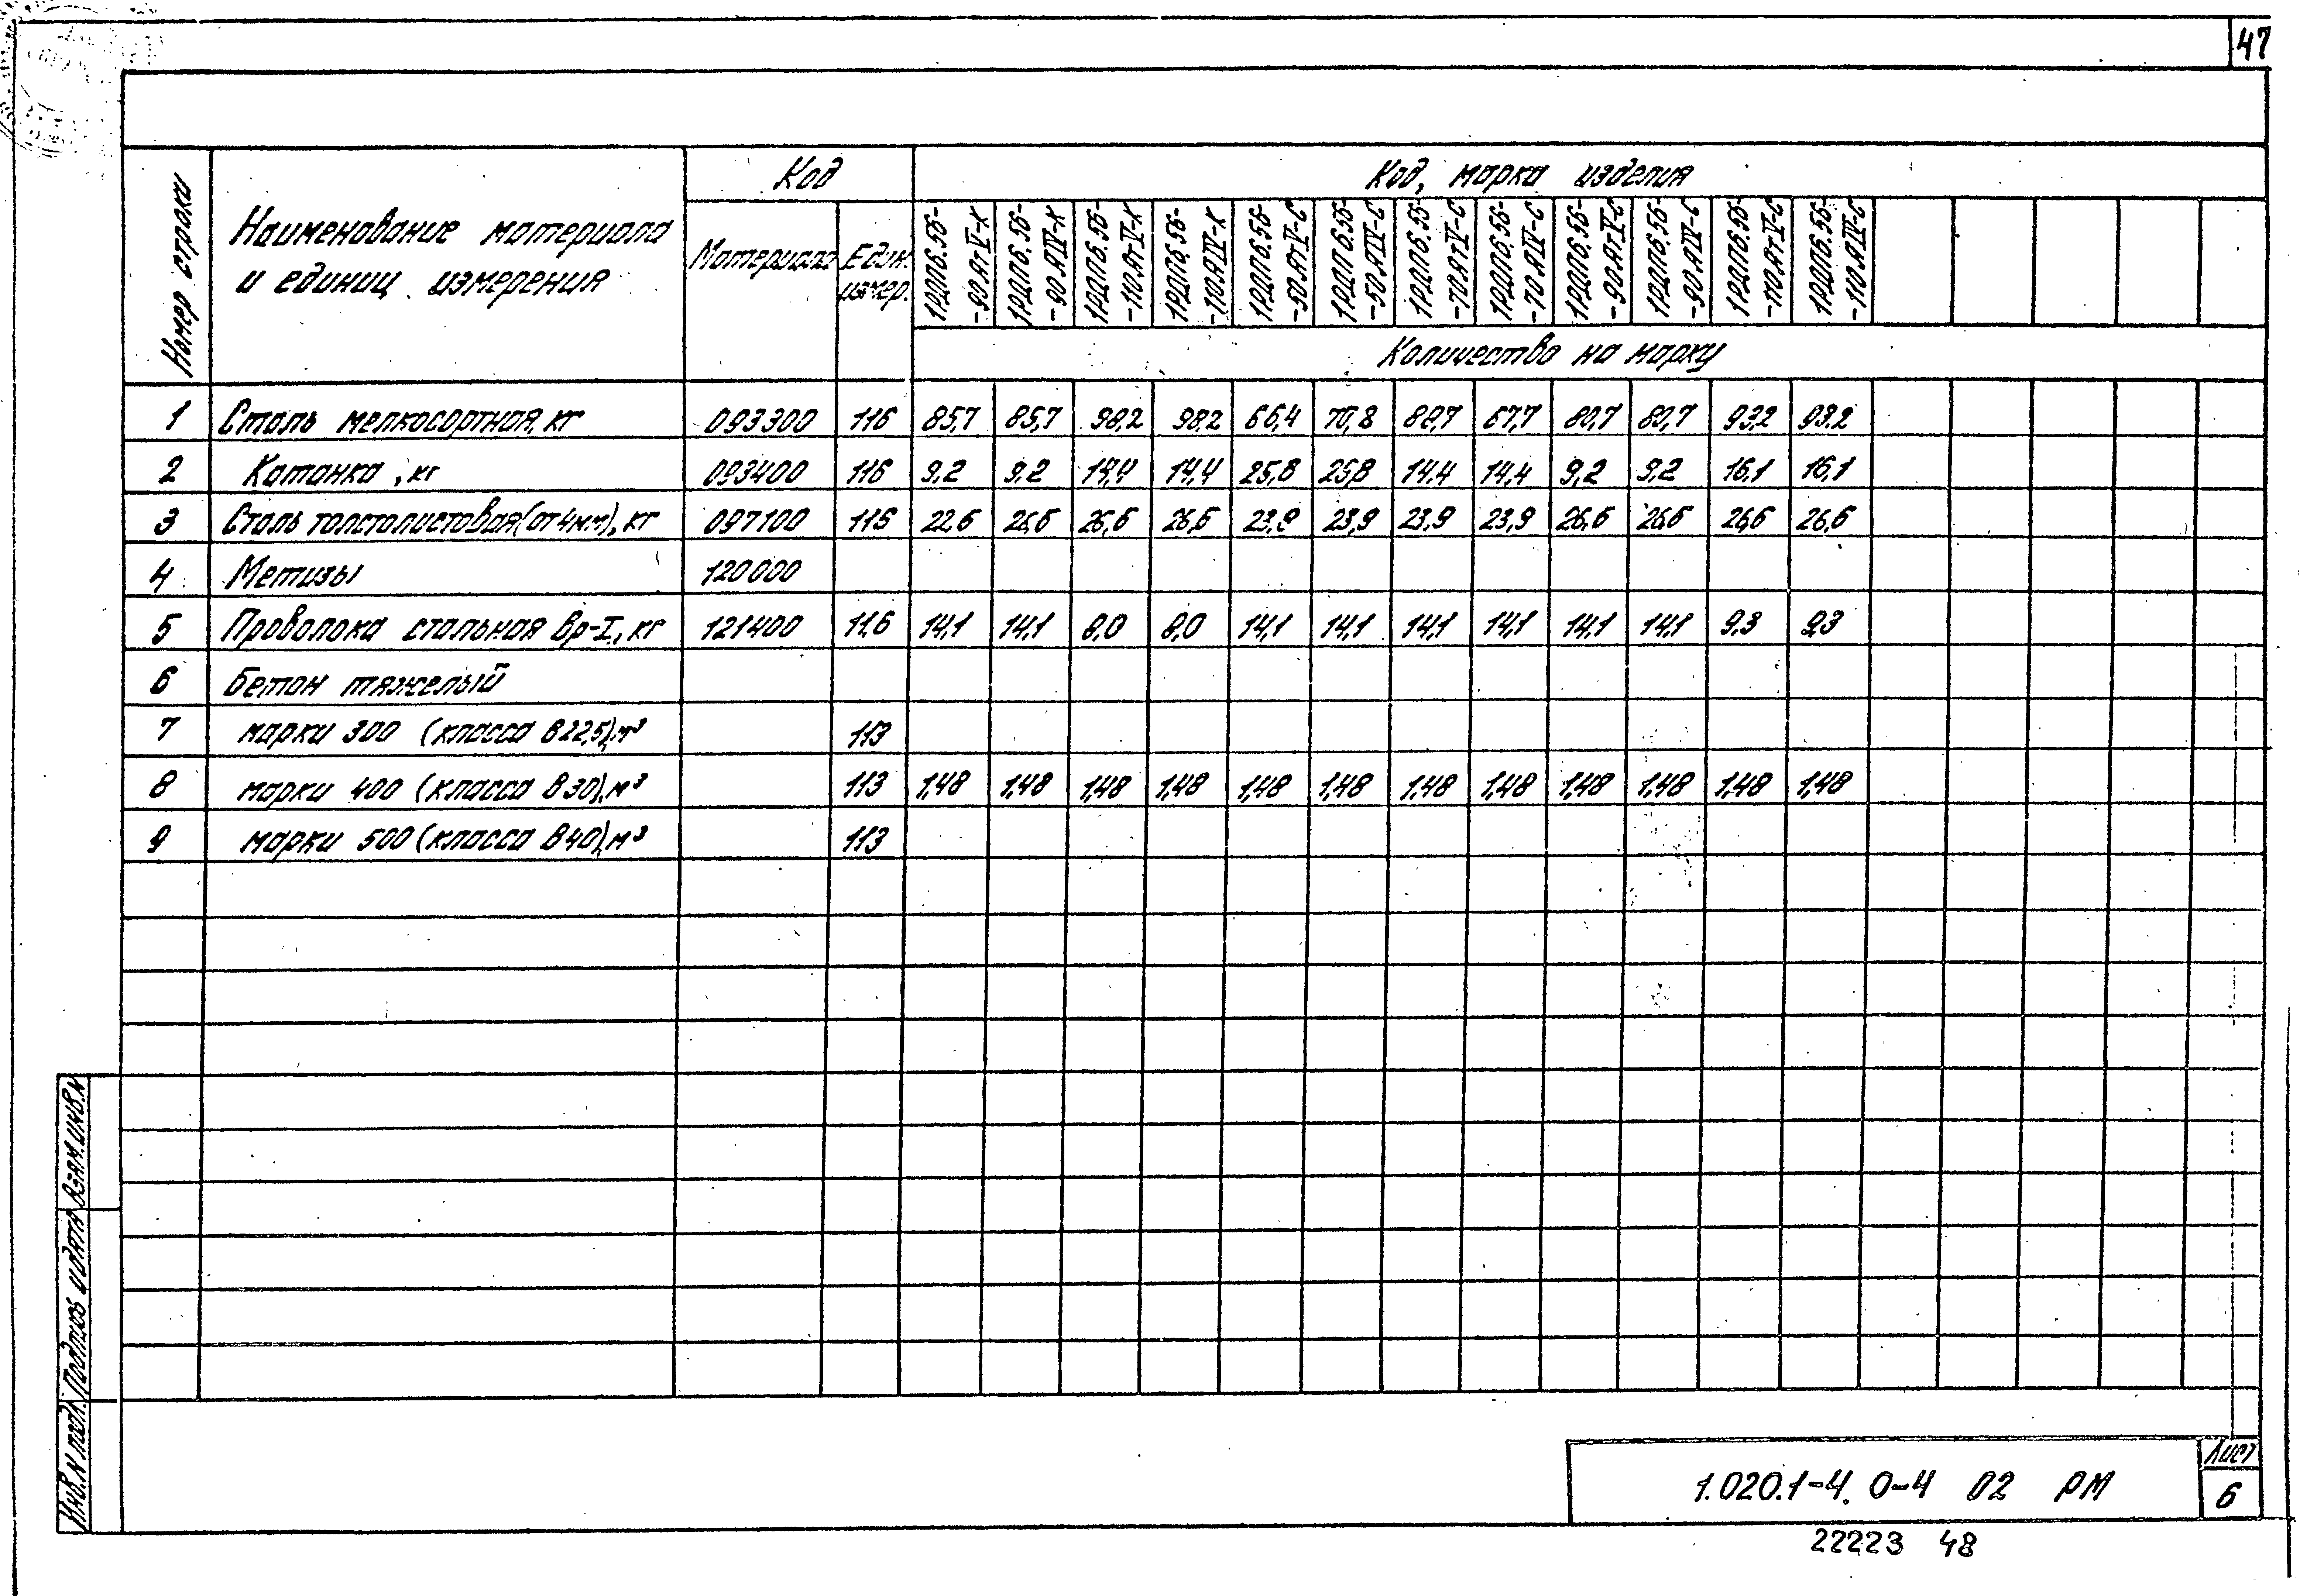 47
Номер строки
Наименование материала
и единиц измерения
Код
Материала
Един. измер.
Код, марка изделия
1РДП6.56- -90АтV-К
1РДП6.56- -90АIV-К
1РДП6.56- -110АтV-К
1РДП6.56- -110АIV-К
1РДП6.56- -50АтV-С
1РДП6.56- -50АIV-С
1РДП6.56- -70АтV-С
1РДП6.56- -70АIV-С
1РДП6.56- -90АтV-С
1РДП6.56- -90АIV-С
1РДП6.56- -110АтV-С
1РДП6.56- -110АIV-С
Количество на марку
1 Сталь мелкосортная, кг 093300 116 85,7 85,7 98,2 98,2 66,4 70,8 67,7 80,7 80,7 93,2 93,2
2 Катанка, кг 093400 116 9,2 9,2 14,4 14,4 25,8 25,8 14,4 14,4 9,2 9,2 16,1 16,1
3 Сталь толстолистовая (от 4мм), кг 097100 116 22,6 26,6 26,6 26,6 23,9 23,9 23,9 23,9 26,6 26,6 26,6 26,6
4 Метизы 120000
5 Проволока стальная Вр-I, кг 121400 116 14,1 14,1 8,0 8,0 14,1 14,1 14,1 14,1 14,1 14,1 9,3 9,3
6 Бетон тяжелый
7 марки 300 (класса В22,5), м³ 113
8 марки 400 (класса В30), м³ 113 1,48 1,48 1,48 1,48 1,48 1,48 1,48 1,48 1,48 1,48 1,48 1,48
9 марки 500 (класса В40), м³ 113
Взам.инв.N
Подпись и дата
Инв.N подл.
1.020.1-4. 0-4 02 РМ
Лист
6
22223 48